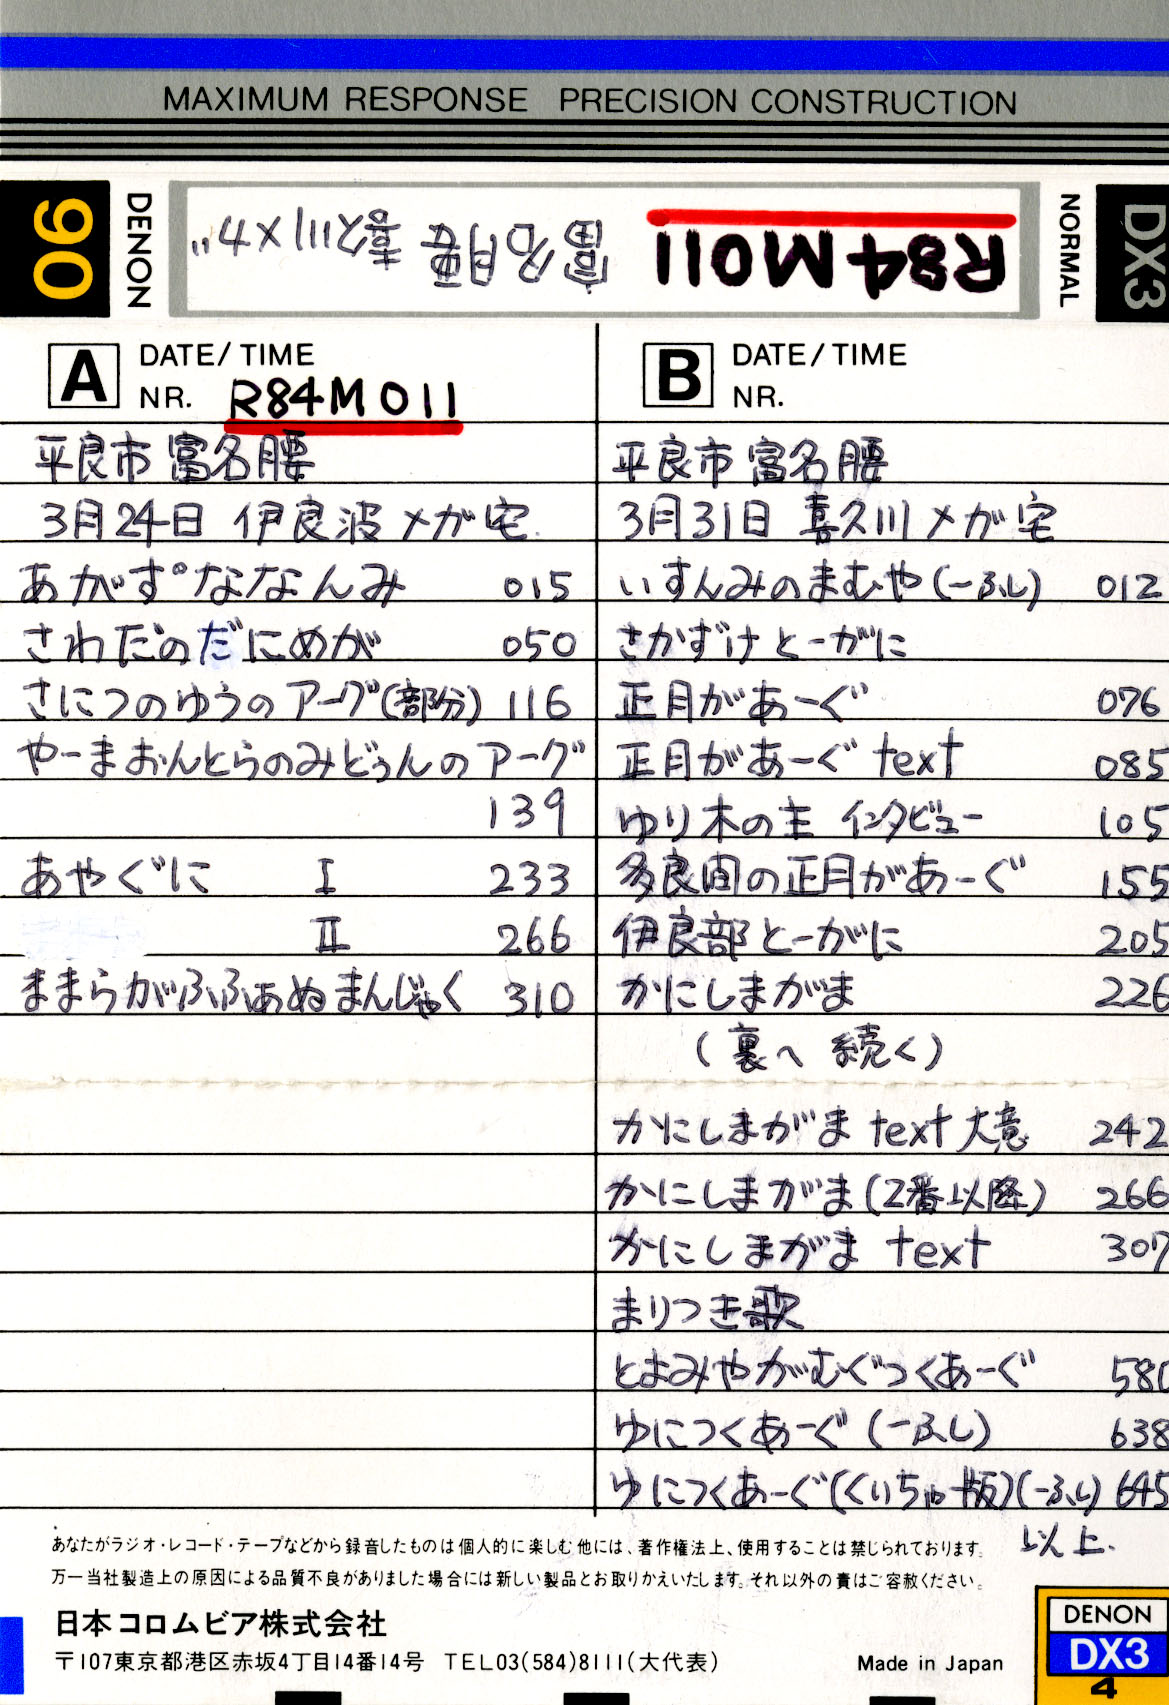 MAXIMUM RESPONSE PRECISION CONSTRUCTION
90
DENON
R84M011 富名腰 喜久川メガ
NORMAL
DX3
A DATE/TIME
NR. R84M011
平良市 富名腰
3月24日 伊良波メガ宅
あがす゜ななんみ 015
さわだのだにめが 050
さにつのゆうのアーグ(部分) 116
やーまおんとらのみどぅんのアーグ
139
あやぐに I 233
II 266
ままらがふふぁぬまんじゃく 310
B DATE/TIME
NR.
平良市 富名腰
3月31日 喜久川メガ宅
いすんみのまむや(一ふし) 012
さかずけとーがに
正月があーぐ 076
正月があーぐ text 085
ゆり木の主 インタビュー 105
多良間の正月があーぐ 155
伊良部とーがに 205
かにしまがま 226
(裏へ続く)
かにしまがま text 大意 242
かにしまがま(2番以降) 266
かにしまがま text 307
まりつき歌
とよみやがむぐつくあーぐ 580
ゆにつくあーぐ (一ふし) 638
ゆにつくあーぐ(くいちゅー版)(一ふし) 645
以上.
あなたがラジオ・レコード・テープなどから録音したものは個人的に楽しむ他には、著作権法上、使用することは禁じられております。
万一当社製造上の原因による品質不良がありました場合には新しい製品とお取りかえいたします。それ以外の責はご容赦ください。
日本コロムビア株式会社
〒107東京都港区赤坂4丁目14番14号 TEL03(584)8111(大代表)
Made in Japan
DENON
DX3
4